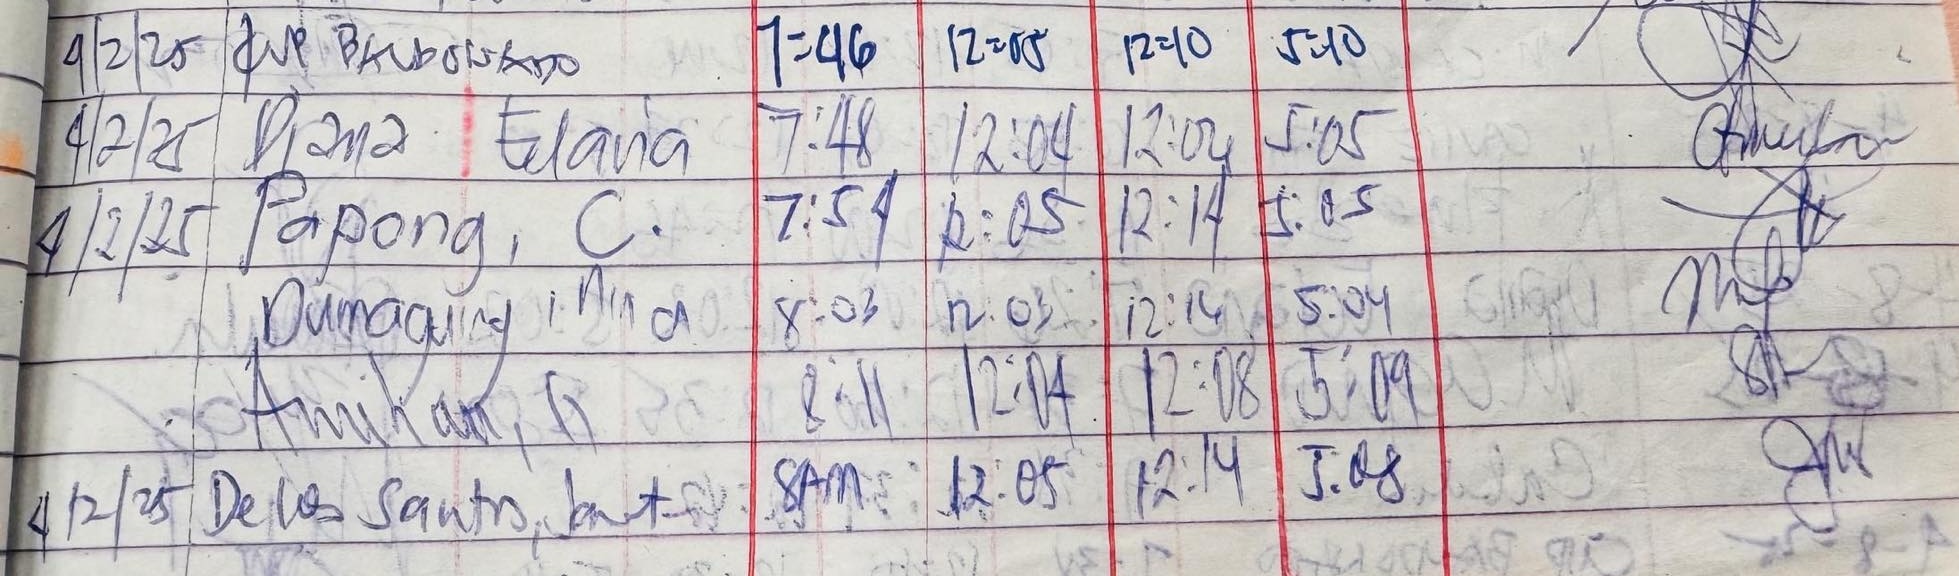 4/2/25 7:46 12:05 12:10 5:10
4/2/25 Diana Elavia 7:48 12:04 12:04 5:05
4/2/25 Papong, C. 7:54 12:05 12:14 5:05
Dumaguing, 8:03 12:03 12:14 5:04
Amihan, 8:11 12:04 12:08 5:09
4/2/25 De los Santos, 8AM 12:05 12:14 5:08